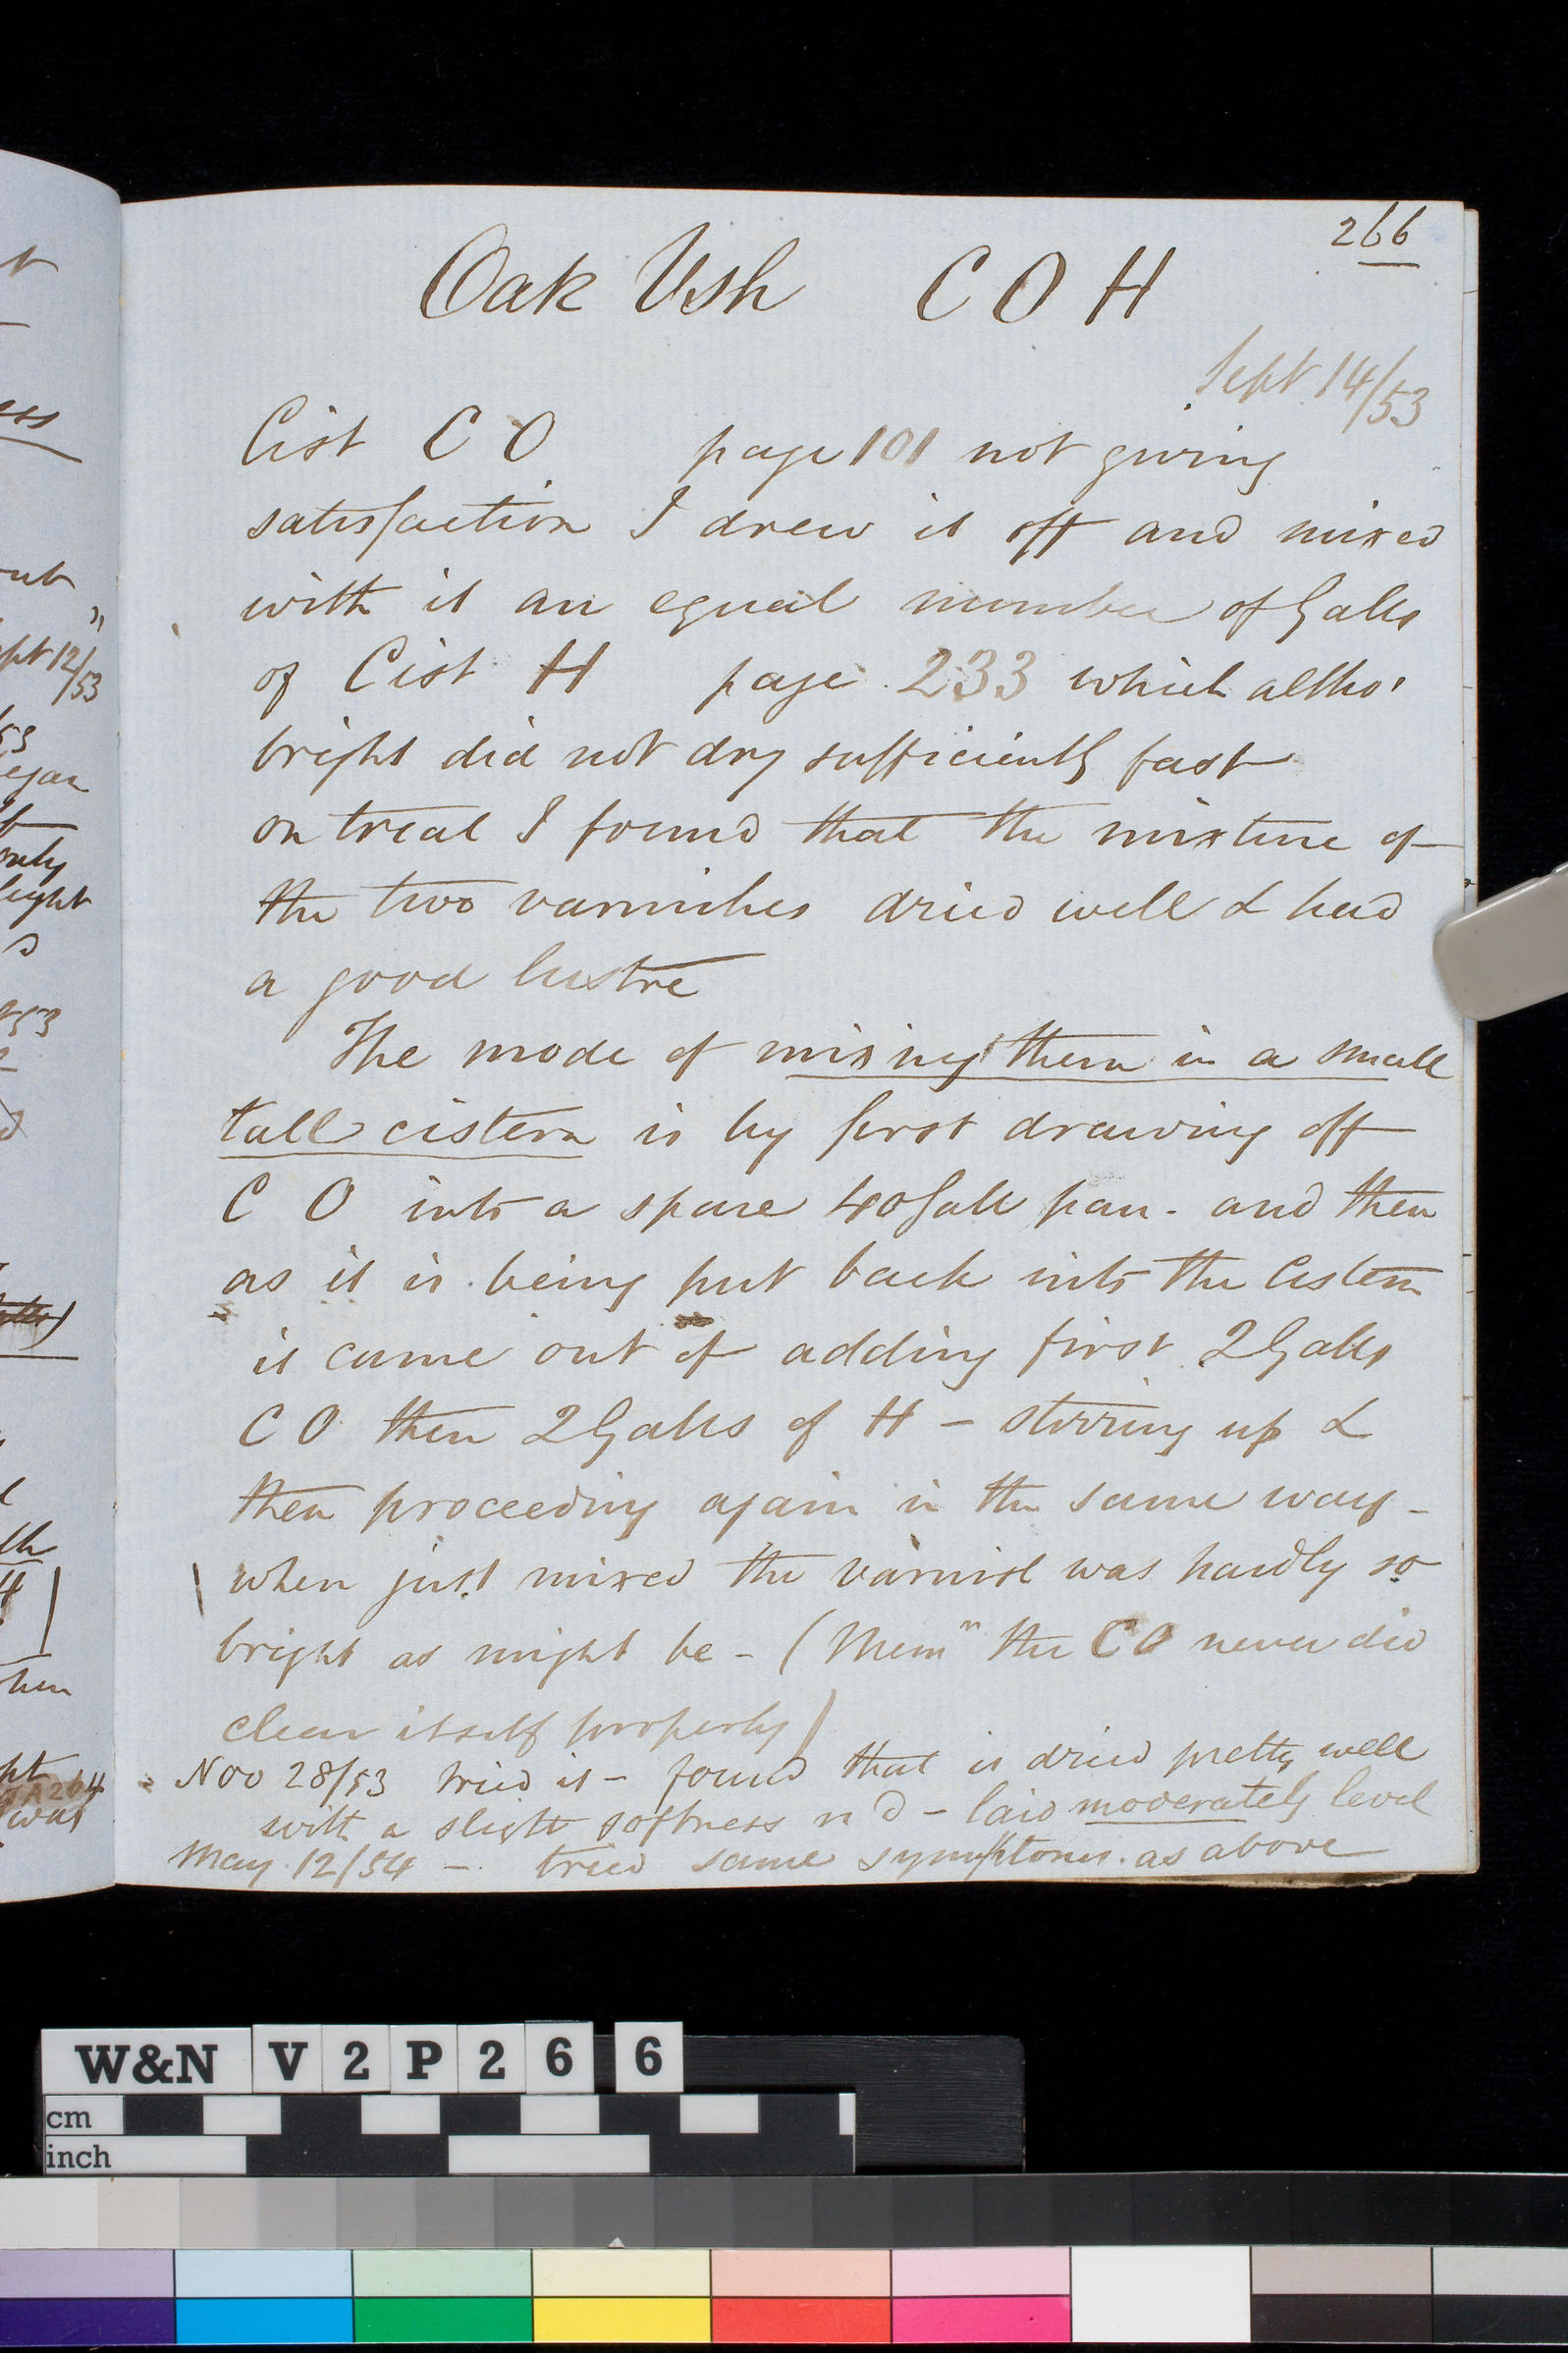 266
Oak Vsh C O H
Sept 14/53
Cist C O page 101 not giving
satisfaction I drew it off and mixed
with it an equal number of Galls
of Cist H page 233 which altho'
bright did not dry sufficiently fast
on treal I found that the mixture of
the two varnishes dried well & had
a good lustre
The mode of mixing them in a small
tall cistern is by first drawing off
C O into a spare 40 Gall pan - and then
as it is being put back into the Cistern
it came out of adding first 2 Galls
C O then 2 Galls of H - stirring up &
then proceeding again in the same way -
when just mixed the varnish was hardly so
bright as might be - (Memm the C O never did
clear itself properly)
Nov 28/53 tried it - found that it dried pretty well
with a slight softness n d - laid moderately level
May 12/54 - tried same symptoms as above
W&N V 2 P 2 6 6
cm
inch